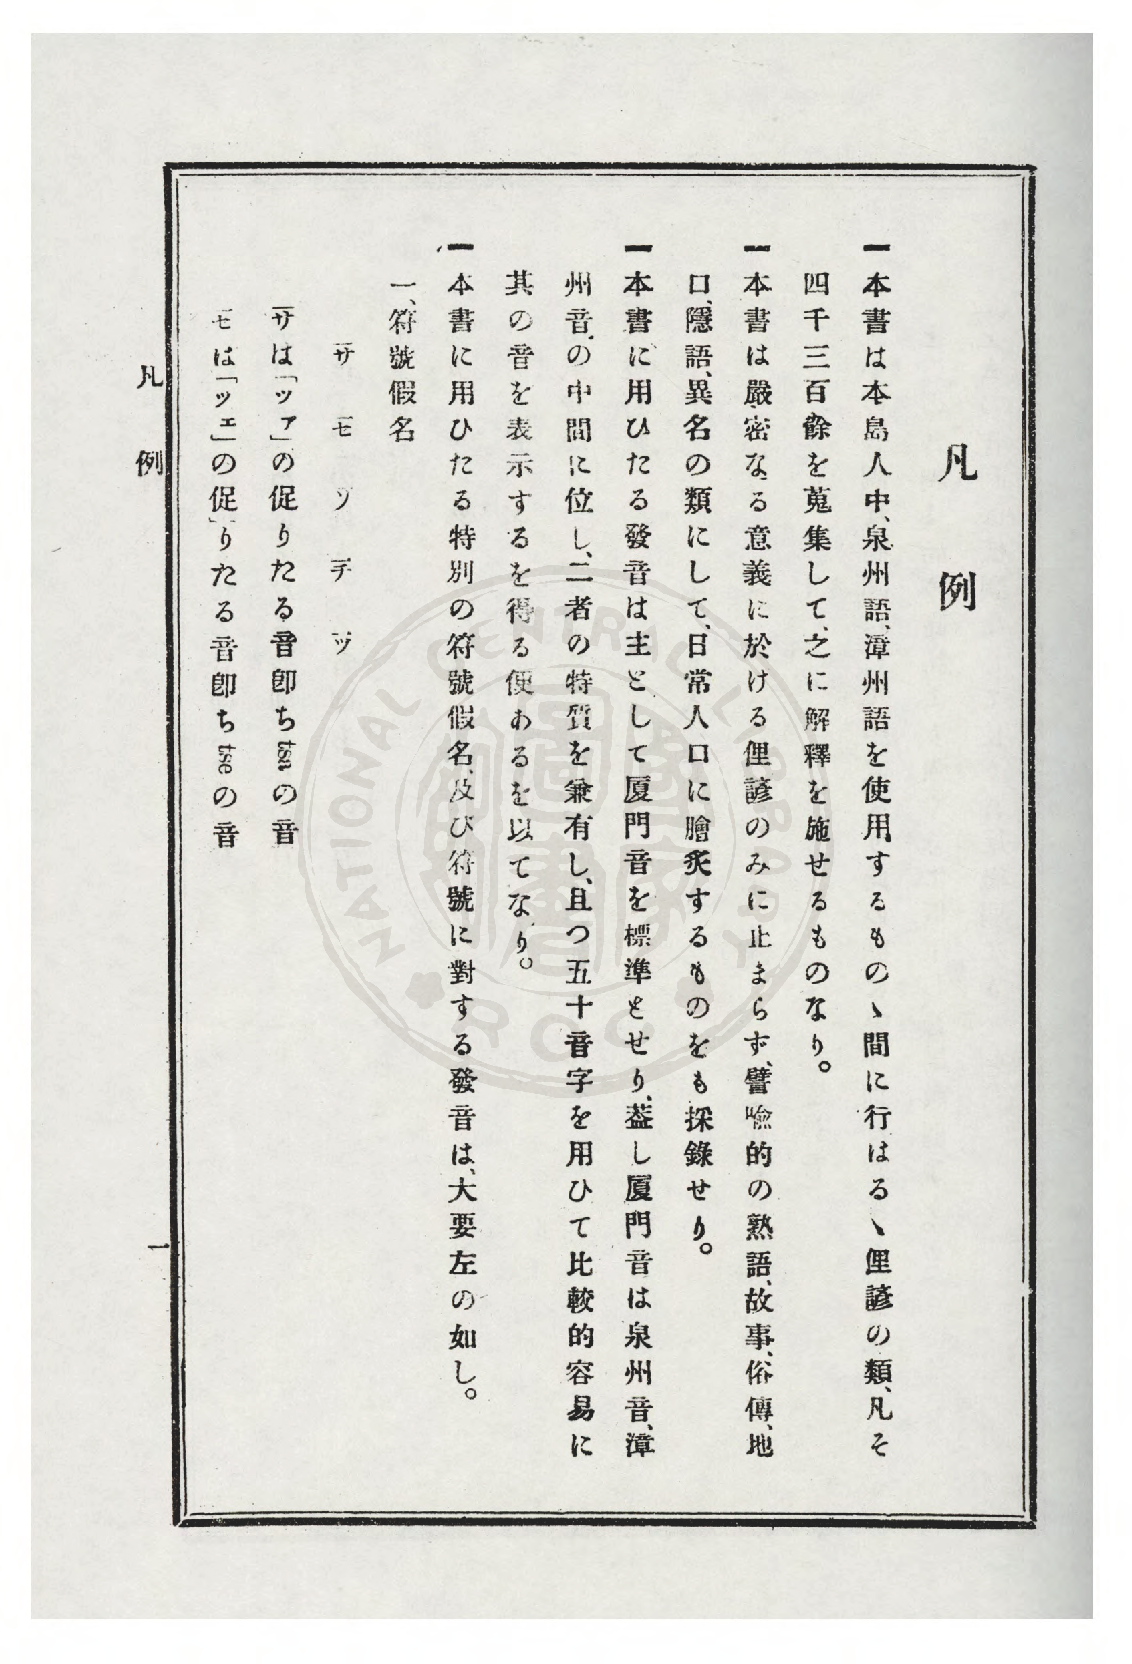 凡例
一本書は本島人中、泉州語、漳州語を使用するもの丶間に行はる丶俚諺の類、凡そ
四千三百餘を蒐集して、之に解釋を施せるものなり。
一本書は嚴密なる意義に於ける俚諺のみに止まらず、譬喩的の熟語、故事、俗傳、地
口、隱語、異名の類にして、日常人口に膾炙するものをも採錄せり。
一本書に用ひたる發音は主として厦門音を標準とせり、蓋し厦門音は泉州音、漳
州音、の中間に位し、二者の特質を兼有し、且つ五十音字を用ひて比較的容易に
其の音を表示するを得る便あるを以てなり。
一本書に用ひたる特別の符號假名、及び符號に對する發音は、大要左の如し。
一、符號假名
サ̅ セ̅ ソ̅ チ̅ ツ̅
サ̅は「ツァ」の促りたる音卽ちtsaの音
セ̅は「ツェ」の促りたる音卽ちtseの音
凡例
一
NATIONAL CENTRAL LIBRARY
ROC
國家圖書館